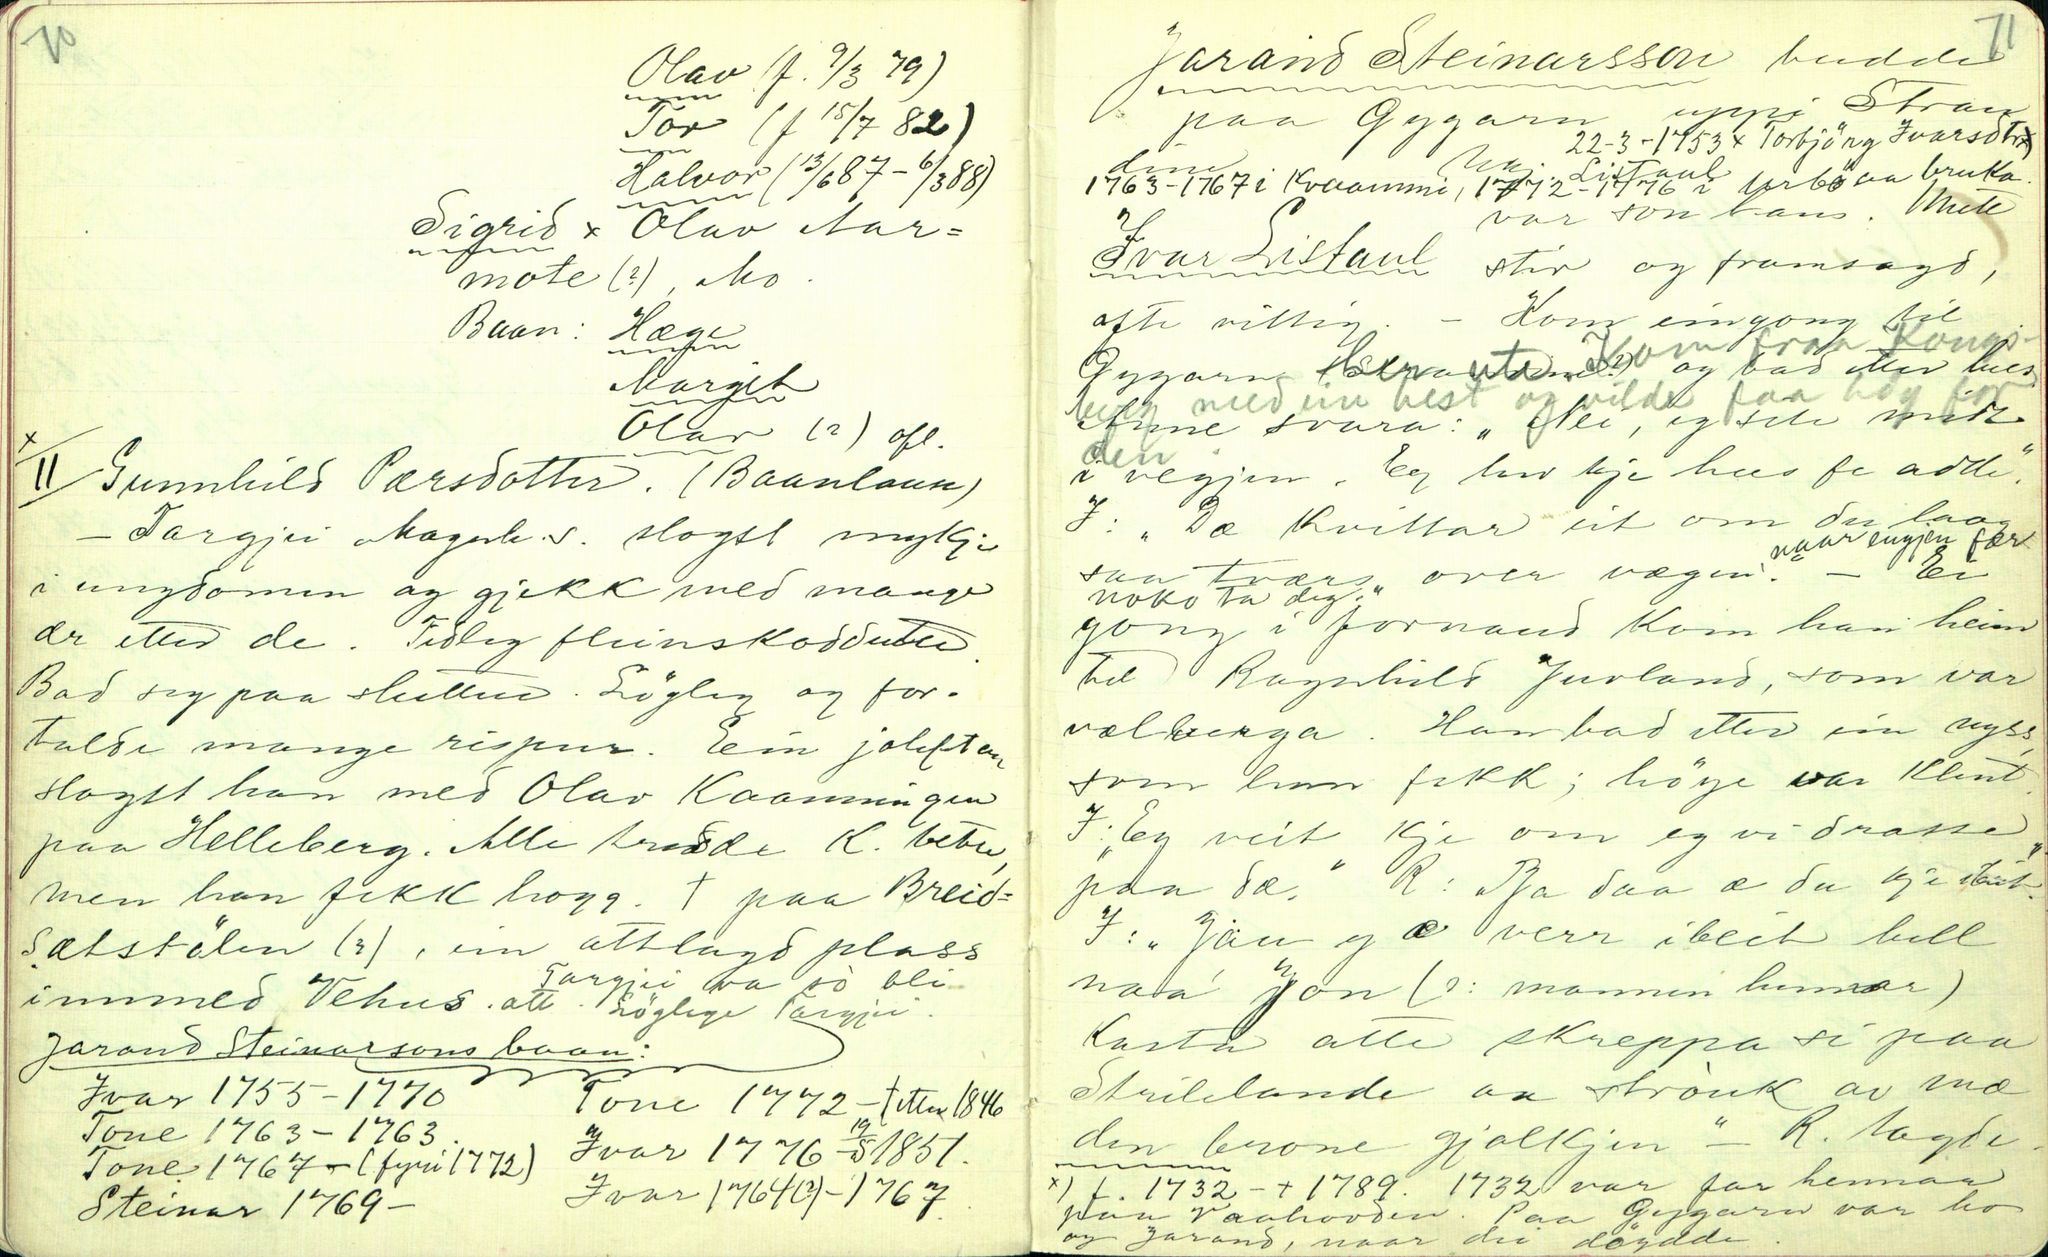 70
Olav (f. 9/3 79)
Tor (f 15/7 82)
Halvor (13/6 87 – 6/3 88)
Sigrid x Olav Aar=
mote (?), Mo.
Baan: Hæge
Margit
Olav (?) ofl.
x/
II/ Gunnhild Pærsdotter. (Baanlaus)
– Targjei Magnh.s. slogst mykje
i ungdomen og gjekk med mange
ær etter de. Tidleg fleinskoddutte.
Bad seg paa sluttne. Löglig og for-
talde mange rispur. Ein joleftan
slogst han med Olav Kaanningen
paa Helleberg. Alle trudde K. betre,
men han fekk hogg. † paa Breid=
sætstölen (?), ein attlagd plass
innmed Vehus.
Targjei va so bli
att. Löglege Targjei.
Jarand Steinarsons baan:
Ivar 1755–1770
Tone 1763–1763.
Tone 1767 – (fyri 1772)
Steinar 1769 –
Tone 1772 – † etter 1846
Ivar 1776 – 19/5 1851.
Ivar 1764(?) – 1767
71
Jarand Steinarsson budde
paa Gygarn uppi Stran
22-3-1753 x Torbjörg Ivarsdtr x)
dine Listaul
1763–1767 i Kvaammi, 1772–1776 i aa bruka.
var son hans. Mete
Ivar Listaul stir og framsagd,
ofte vittig. – Kom eingong til
Gygarn og bad etter hus
Kom fraa Kongs-
berg med ein hest og vilde faa höy for
den
Anne svara: „Nei, eg site midt
i vegjen. Eg hev kje hus fe adde".
I: „Dæ kvittar eit om du laag
saa tværs over vægen." – Ei
naar engjen fær
noko ta deg."
gong i fornaud kom han heim
til Ragnhild Juvland, som var
vælberga. Han bad etter ein nyss,
som han fekk; höye var klent.
I: „Eg veit kje om eg vi drasse
paa dæ." R: „Ja daa æ du kje ibeit."
I: „Jau eg æ verr ibeit hell
naa' Jon (?: mannen hennar)
kasta atte skreppa si paa
Strilelande aa strouk av mæ
den brone gjalkjen" – R. tagde.
x) f. 1732 – † 1789. 1732 var far hennaa
paa Vaahovden. Paa Gygarn var ho
og Jarand, naar dei döydde.